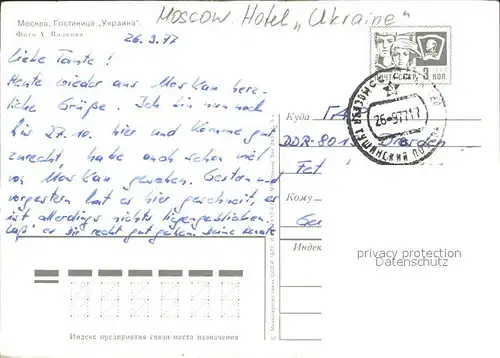 Москва. Гостиница „Украина".
Фото А. Волкова
Moscow Hotel „Ukraine"
26.9.77
ПОЧТА СССР 3 КОП
Liebe Tante!
Heute wieder aus Moskau herz-
liche Grüße. Ich bin nun noch
bis 27.10. hier und komme gut
zurecht, habe auch schon viel
von Moskau gesehen. Gestern und
vorgestern hat es hier geschneit, es
ist allerdings nichts liegengeblieben.
Laß es Dir recht gut gehen. Deine Renate
26-9771
Куда
DDR-801 Dresden
Fet
Кому
privacy protection
Datenschutz
Индекс предприятия связи места назначения